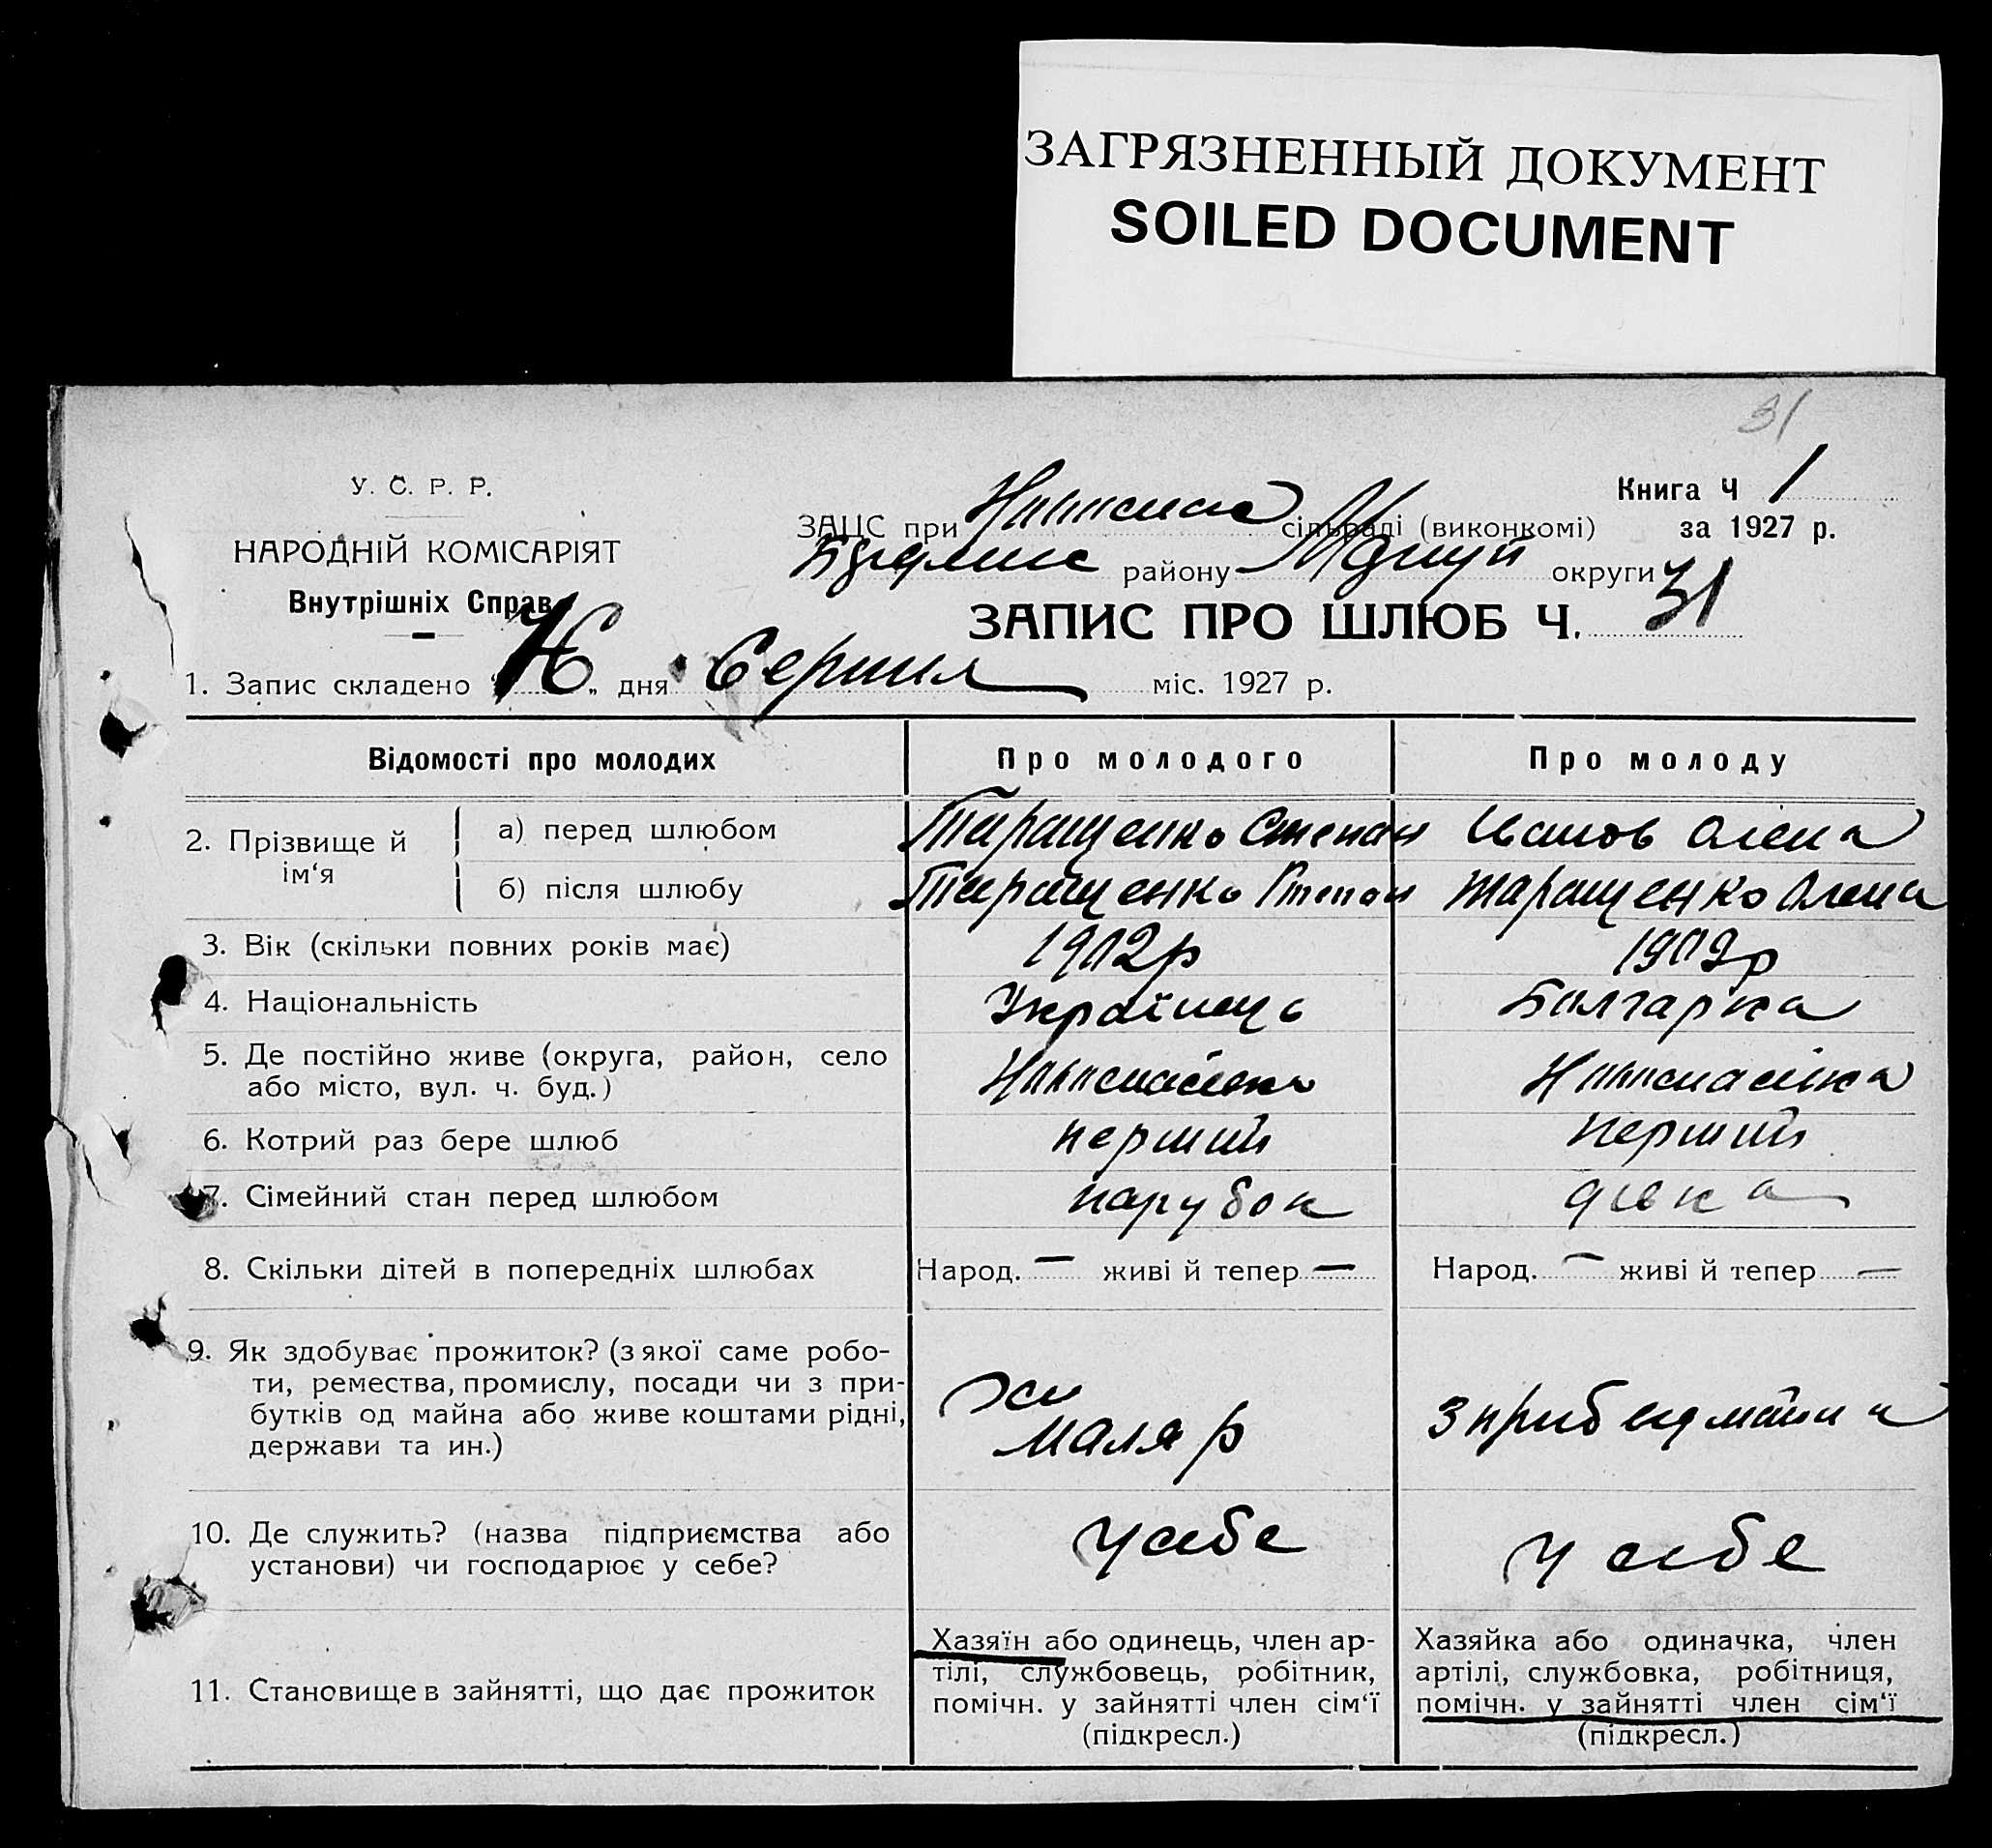 ЗАГРЯЗНЕННЫЙ ДОКУМЕНТ
SOILED DOCUMENT
31
У. С. Р. Р.
НАРОДНІЙ КОМІСАРІЯТ
Внутрішніх Справ
Книга Ч 1
за 1927 р.
ЗАЦС при сільраді (виконкомі)
району округи
ЗАПИС ПРО ШЛЮБ Ч. 31
1. Запис складено „ “ дня Серпня міс. 1927 р.
Відомості про молодих
Про молодого
Про молоду
2. Прізвище й ім‘я
а) перед шлюбом
Таращенко Степан
Иванов Олена
б) після шлюбу
Таращенко Степан
Таращенко Олена
3. Вік (скільки повних років має)
1902р
1909р
4. Національність
Українець
Балгарка
5. Де постійно живе (округа, район, село
або місто, вул. ч. буд.)
6. Котрий раз бере шлюб
перший
перший
7. Сімейний стан перед шлюбом
парубок
дівка
8. Скільки дітей в попередніх шлюбах
Народ. — живі й тепер —
Народ. — живі й тепер —
9. Як здобуває прожиток? (з якої саме робо-
ти, ремества, промислу, посади чи з при-
бутків од майна або живе коштами рідні,
держави та ин.)
маляр
з приб від майна
10. Де служить? (назва підприємства або
установи) чи господарює у себе?
у себе
у себе
11. Становище в зайнятті, що дає прожиток
Хазяїн або одинець, член ар-
тілі, службовець, робітник,
помічн. у зайнятті член сім‘ї
(підкресл.)
Хазяйка або одиначка, член
артілі, службовка, робітниця,
помічн. у зайнятті член сім‘ї
(підкресл.)